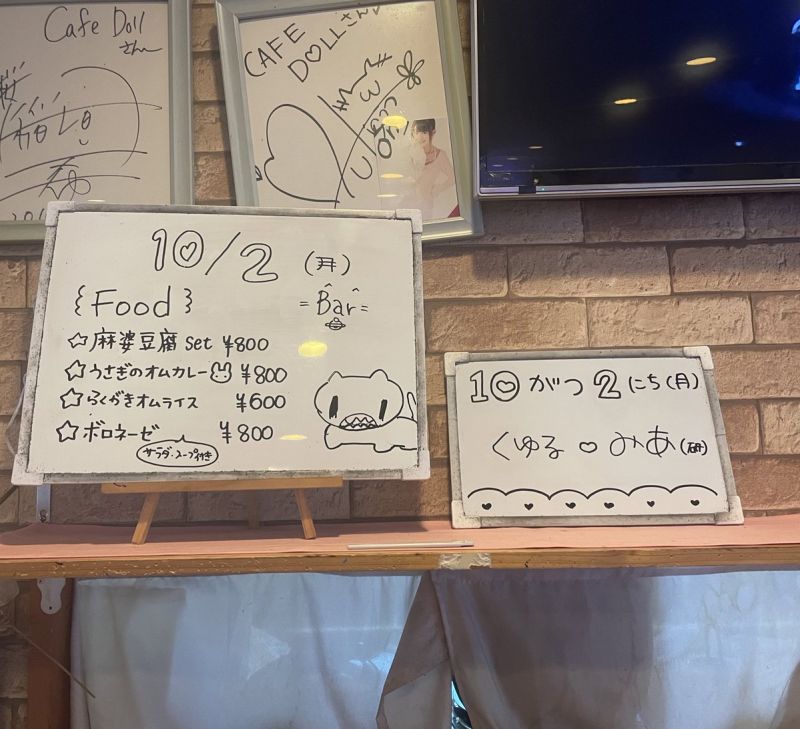 Cafe Doll
さん
CAFE
DOLLさん
10/2 (月)
{Food}
=Bar=
☆麻婆豆腐 Set ¥800
☆うさぎのオムカレー ¥800
☆らくがきオムライス ¥600
☆ボロネーゼ ¥800
サラダ・スープ付き
10がつ2にち(月)
くゆる♡みあ(研)